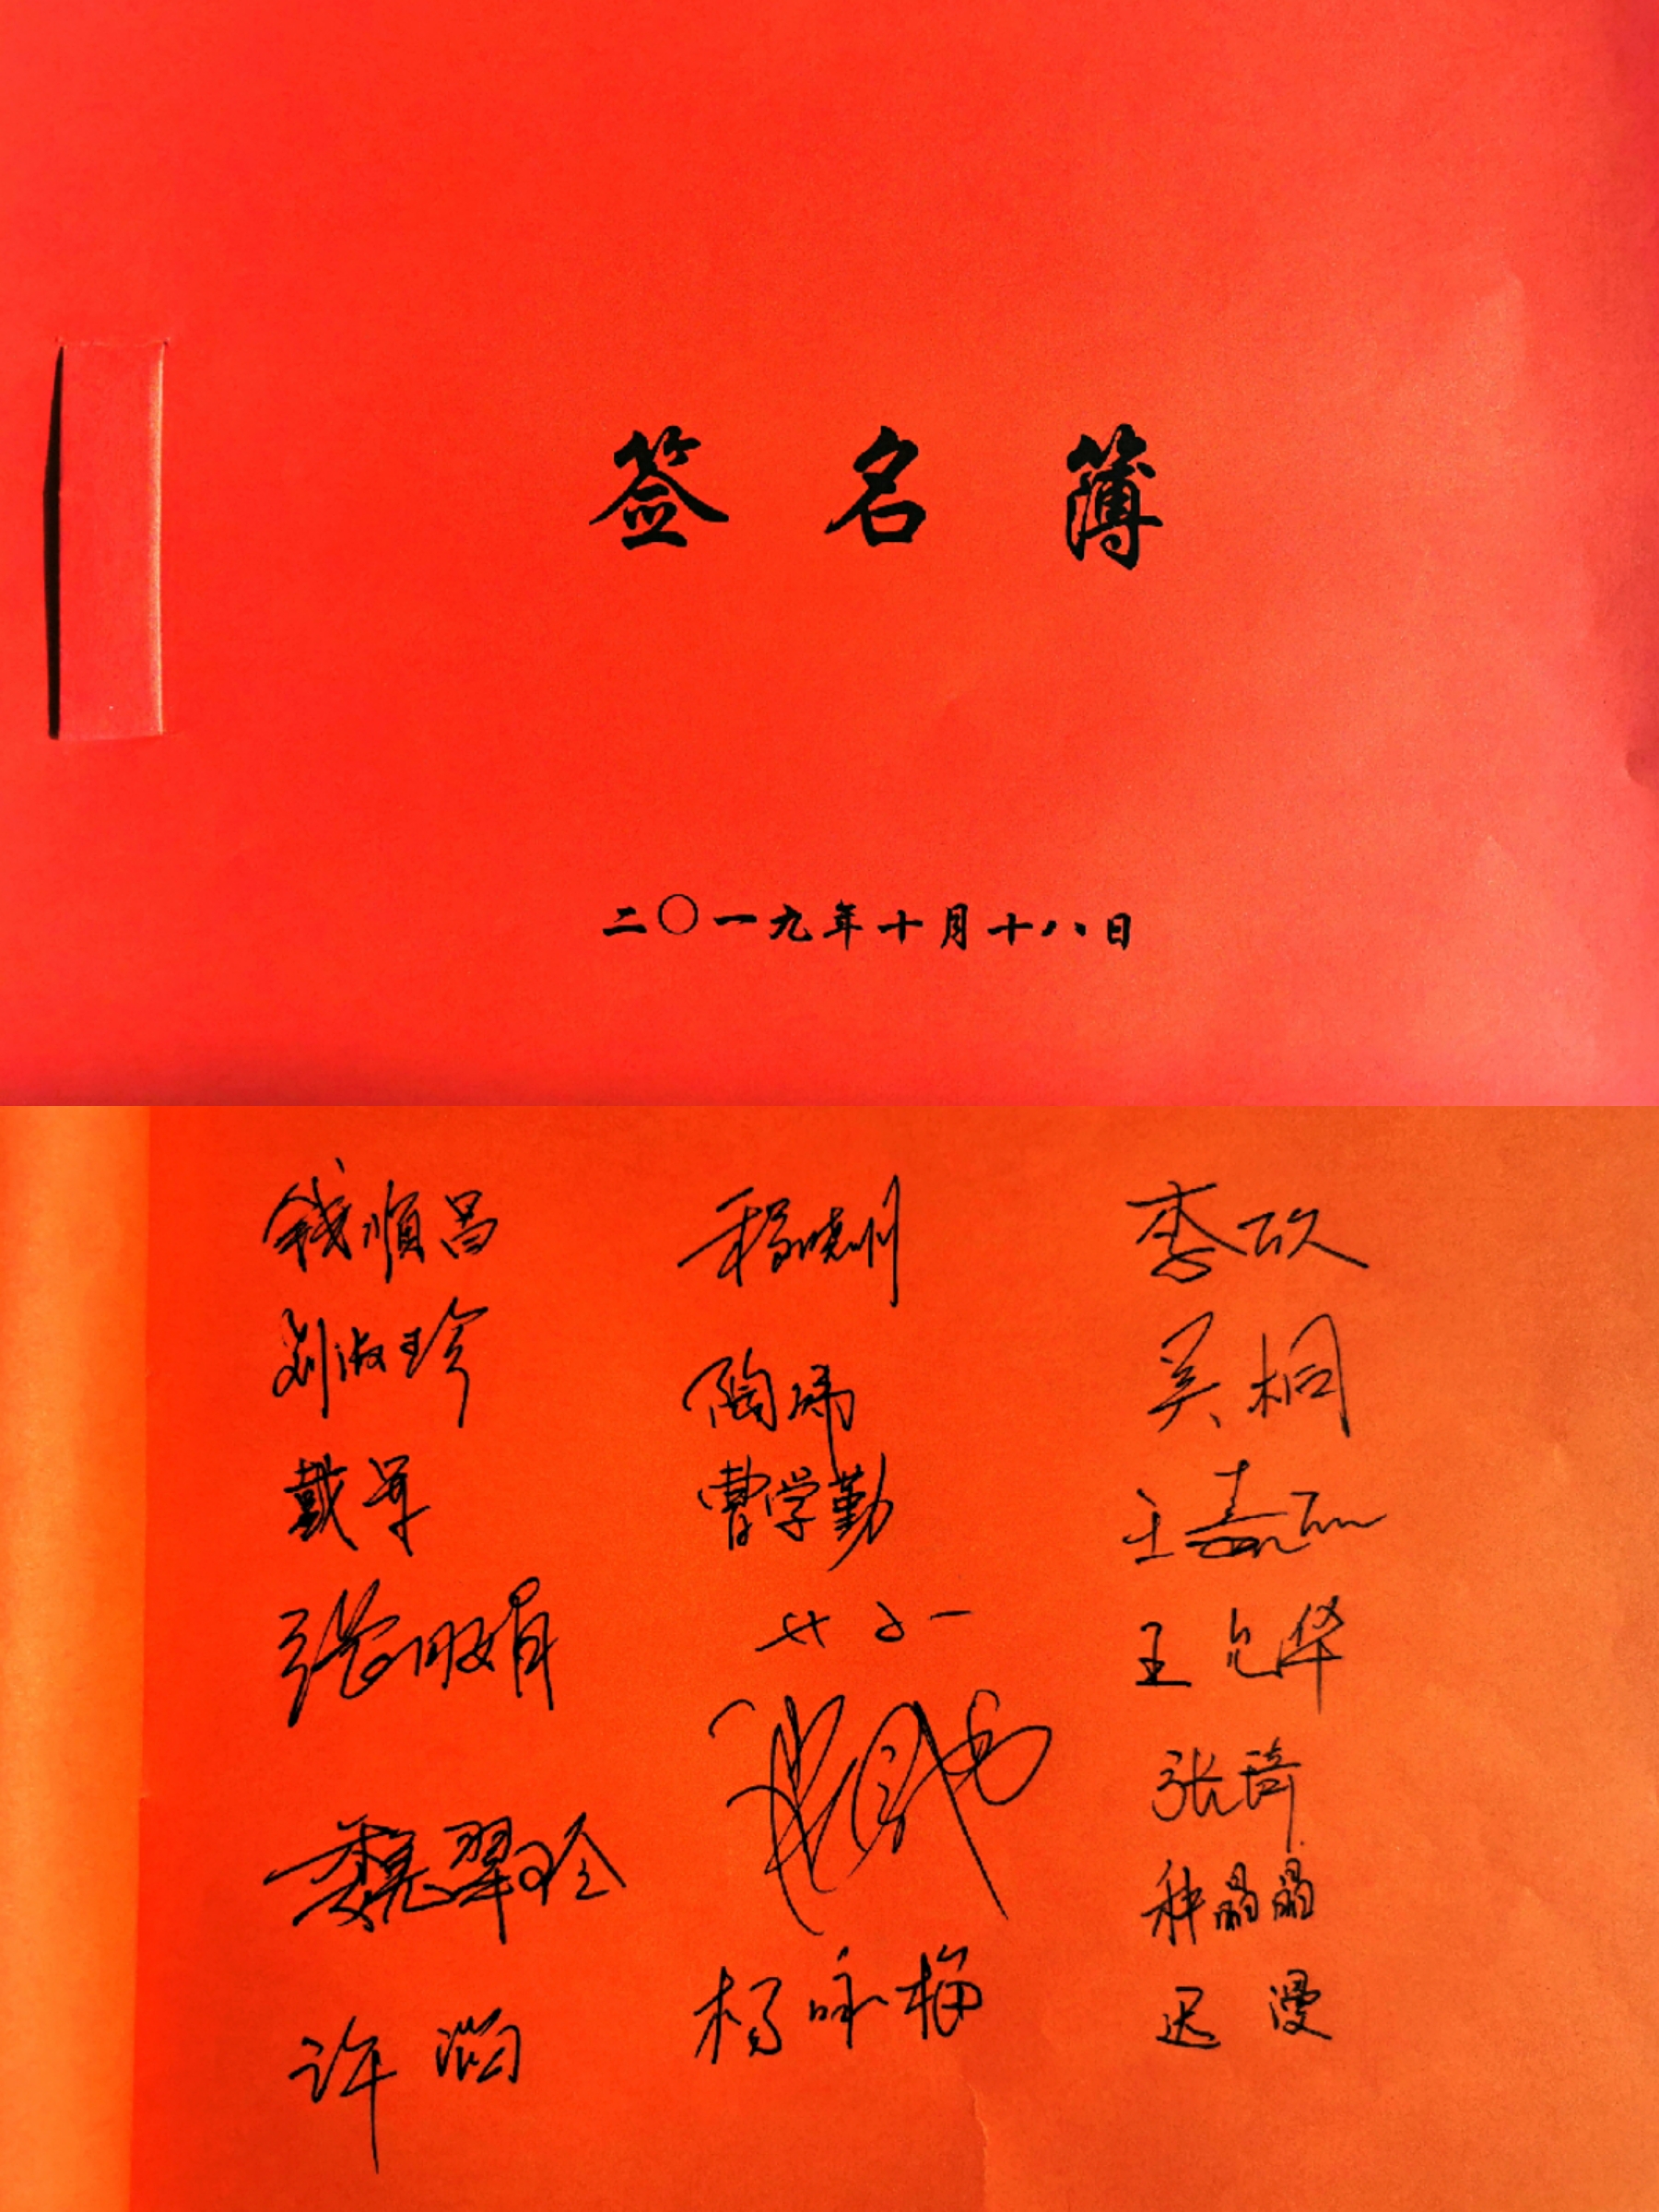 签名簿
二〇一九年十月十八日
钱顺昌
刘淑珍
戴军
魏翠玲
许滔
杨晓川
陶瑞
曹学勤
杨咏梅
李欣
吴桐
王嘉
王允华
张琦
种晶晶
迟漫